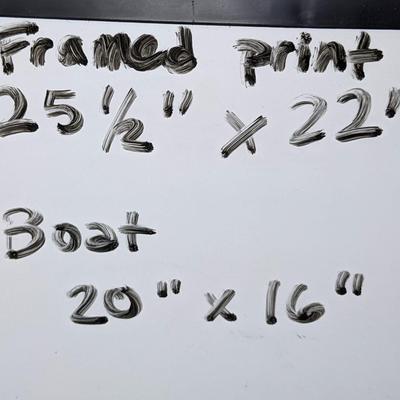 Framed print
25 1/2" x 22"
Boat
20" x 16"